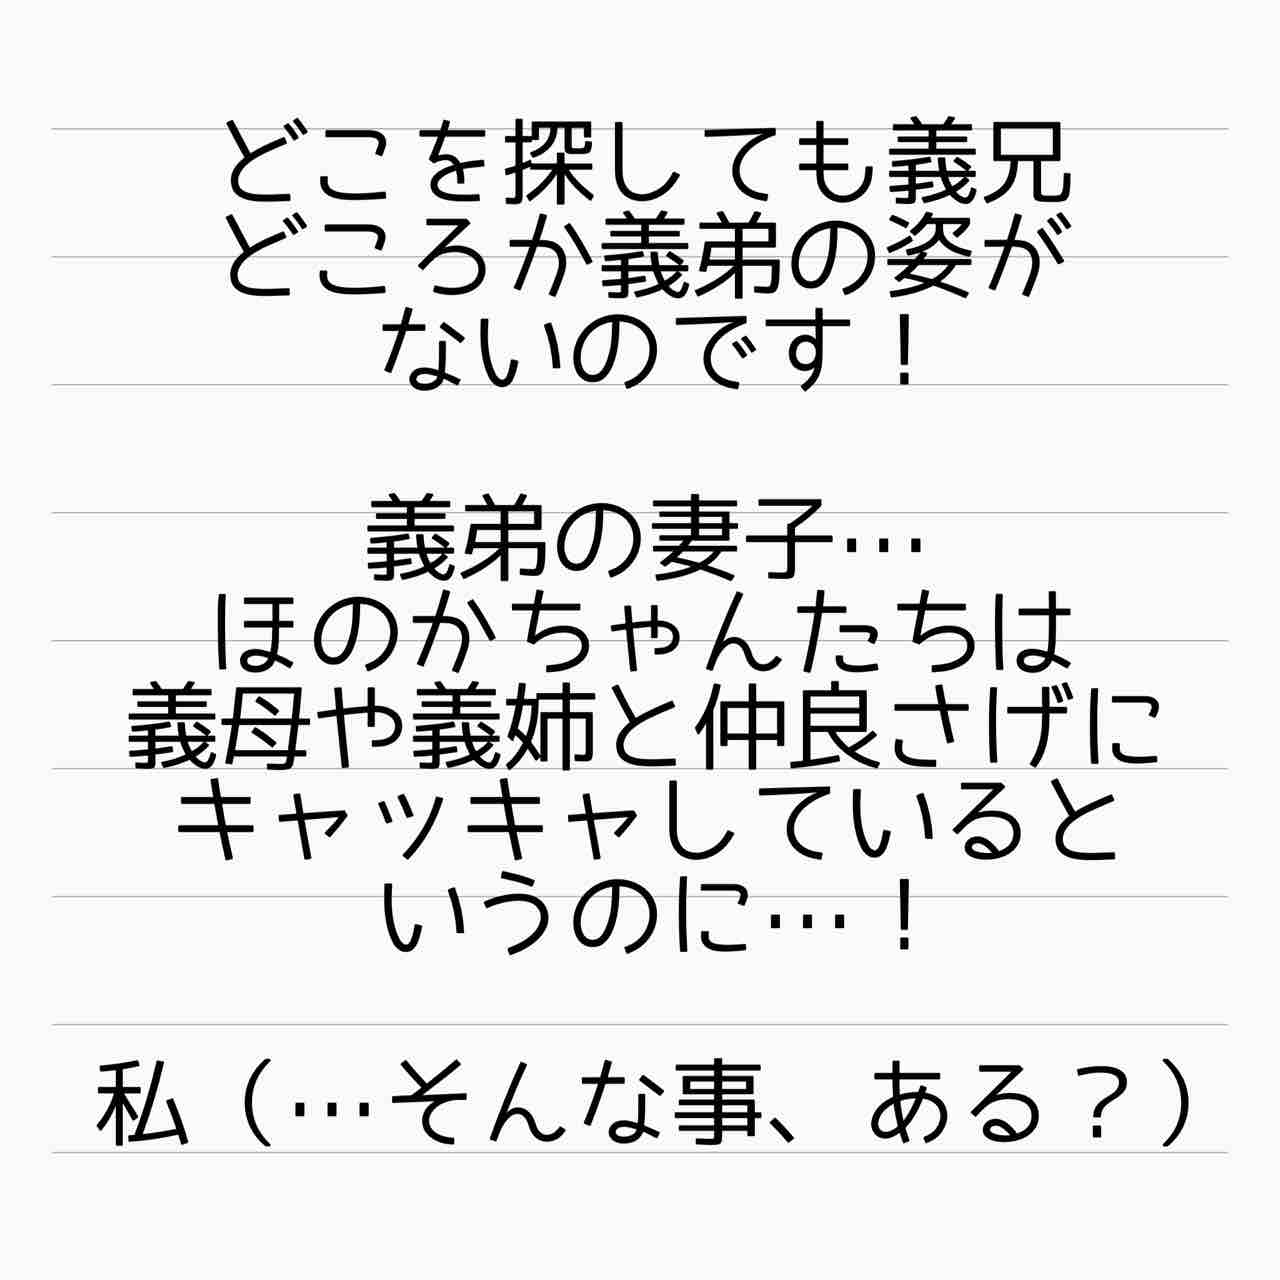 どこを探しても義兄
どころか義弟の姿が
ないのです！
義弟の妻子…
ほのかちゃんたちは
義母や義姉と仲良さげに
キャッキャしていると
いうのに…！
私（…そんな事、ある？）